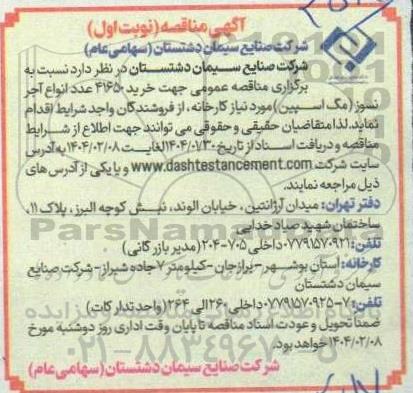 آگهی مناقصه (نوبت اول)
شرکت صنایع سیمان دشتستان (سهامی عام)
شرکت صنایع سیمان دشتستان در نظر دارد نسبت به
برگزاری مناقصه عمومی جهت خرید ۴۱۶۵۰ عدد انواع آجر
نسوز (مگ اسپین) مورد نیاز کارخانه، از فروشندگان واجد شرایط اقدام
نماید. لذا متقاضیان حقیقی و حقوقی می توانند جهت اطلاع از شرایط
مناقصه و دریافت اسناد از تاریخ ۱۴۰۴/۰۷/۳۰ لغایت ۱۴۰۴/۰۲/۰۸ به آدرس
سایت شرکت www.dashtestancement.com و یا یکی از آدرس های
ذیل مراجعه نمایند.
دفتر تهران: میدان آرژانتین، خیابان الوند، نبش کوچه البرز، پلاک ۱۱،
ساختمان شهید صیاد خدایی
تلفن: ۰۷۷۹۱۵۷۰۹۲۱ داخلی ۷۰۵-۲۰۴ (مدیر بازرگانی)
کارخانه: استان بوشهر - برازجان - کیلومتر ۷ جاده شیراز - شرکت صنایع
سیمان دشتستان
تلفن: ۷-۰۷۷۹۱۵۷۰۹۲۵ داخلی ۲۶۰ الی ۲۶۴ (واحد تدارکات)
ضمناً تحویل و عودت اسناد مناقصه تا پایان وقت اداری روز دوشنبه مورخ
۱۴۰۴/۰۲/۰۸ خواهد بود.
شرکت صنایع سیمان دشتستان (سهامی عام)
ParsNamadData
۰۲۱-۸۸۳۴۹۶۷۰-۵